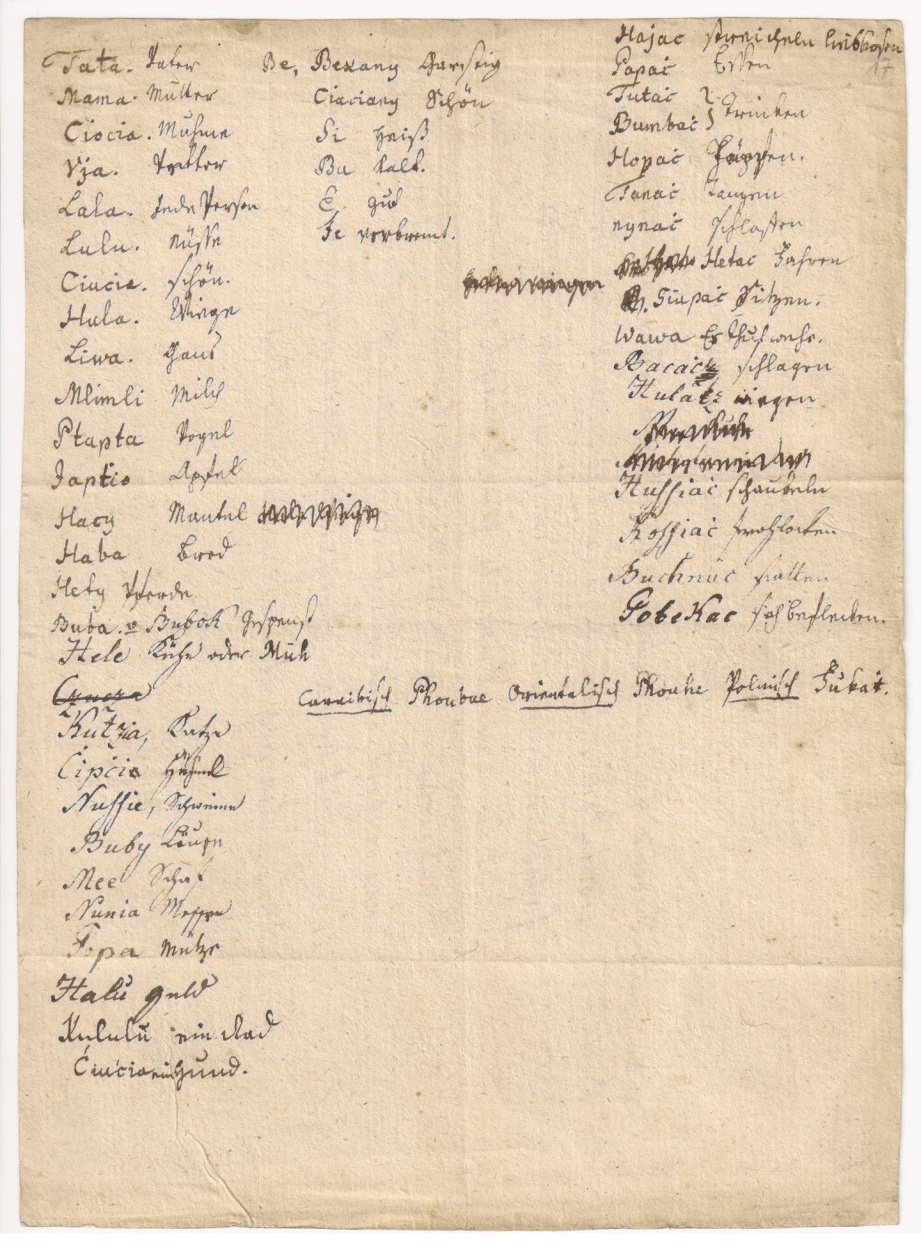 17
Tata. Vater
Mama. Mutter
Ciocia. Muhme
Vja. Vetter
Lala. Jede Person
Lulu. Nüsse
Ciucia. schön.
Hula. Wiege
Liwa. Gans
Mlimli Milch
Ptapta Vogel
Japtio Apfel
Hacy Mantel
Haba Brod
Hety Pferde
Buba. Bubok Gespenst
Hele Kühe oder Muh
Kutzia, Katze
Cipcia
Nussie, Schweine
Buby Läuse
Mee Schaf
Nunia Messer
Popa Mütze
Halu Geld
Kululu ein Rad
Ciucia ein Hund.
Be, Bexany Garstig
Ciaciany Schön
Si heiß
Bu kalt.
E gut
Fe verbremt.
Hajac streicheln liebkosen
Papac Essen
Tutac
Bumbac } Trinken
Hopac
Tanac tanzen
nynac schlaffen
Hetac Fahren
Siupac Sitzen.
Wawa Es thut wehe.
Bacac schlagen
Hulatz wiegen
Hussiac schaukeln
Kossiac frohlocken
Buchnac
Gobekac sich beflecken.
Caraibisch Phoubae Orientalisch Phouhe Polnisch Fukai.